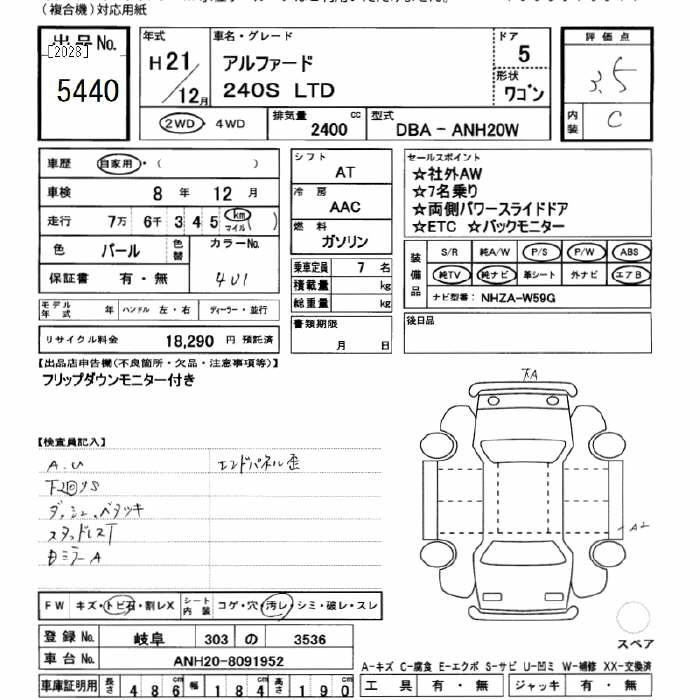 （複合機）対応用紙
出品No.
[2028]
5440
年式
H21/12月
車名・グレード
アルファード
240S LTD
ドア
5
形状
ワゴン
2WD・4WD
排気量
2400 cc
型式
DBA - ANH20W
評価点
3.5
内装
C
車歴 自家用・( )
車検 8年 12月
走行 7万 6千 3 4 5 km マイル( )
色 パール 色替 カラーNo.
保証書 有・無 4U1
モデル年式 年 ハンドル 左・右 ディーラー・並行
リサイクル料金 18,290 円 預託済
シフト
AT
冷房
AAC
燃料
ガソリン
乗車定員 7 名
積載量 kg
総重量 kg
書類期限
月 日
セールスポイント
☆社外AW
☆7名乗り
☆両側パワースライドドア
☆ETC ☆バックモニター
装備品
S/R 純A/W P/S P/W ABS
純TV 純ナビ 革シート 外ナビ エアB
ナビ型番: NHZA-W59G
後日品
【出品店申告欄(不良箇所・欠品・注意事項等)】
フリップダウンモニター付き
【検査員記入】
A.U エンドパネル歪
下回りS
ダッシュ、ベタツキ
スタッドレスT
ミラーA
FW キズ・トビ石・割レX シート内装 コゲ・穴・汚レ・シミ・破レ・スレ
登録No. 岐阜 303 の 3536
車台No. ANH20-8091952
車庫証明用 長さ 486cm 幅 184cm 高さ 190cm
A
A2
スペア
A-キズ C-腐食 E-エクボ S-サビ U-凹ミ W-補修 XX-交換済
工具 有・無 ジャッキ 有・無